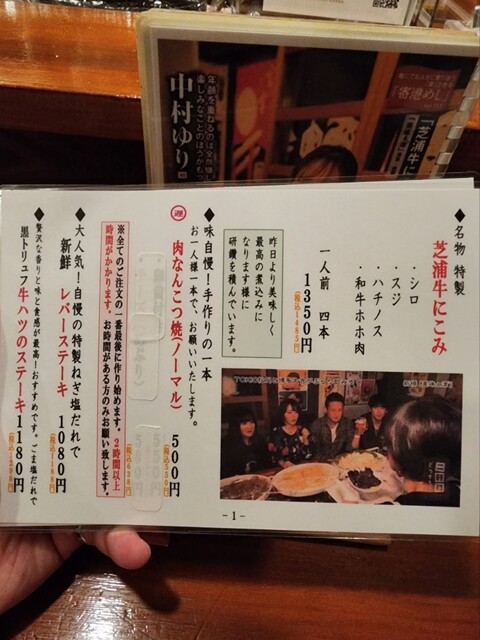 年齢を重ねるのは全然怖く
楽しみなことのほうがもち
中村ゆり
「寄港めし
「芝浦牛に
◆名物 特製
芝浦牛にこみ
・シロ
・スジ
・ハチノス
・和牛ホホ肉
一人前 四本
1350円
(税込1485円)
昨日より美味しく
最高の煮込みに
なります様に
研鑽を積んでいます。
◆味自慢！手作りの一本
お一人様一本で、お願いいたします。
遅 肉なんこつ焼(ノーマル) 500円
(税込550円)
※全てのご注文の一番最後に作り始めます。2時間以上
時間がかかります。お時間がある方のみお願い致します。
◆大人気！自慢の特製ねぎ塩だれで
新鮮 レバーステーキ 1080円
(税込1188円)
◆贅沢な香りと味と食感が最高！おすすめです。ごま塩だれで
黒トリュフ牛ハツのステーキ 1180円
(税込1298円)
- 1 -